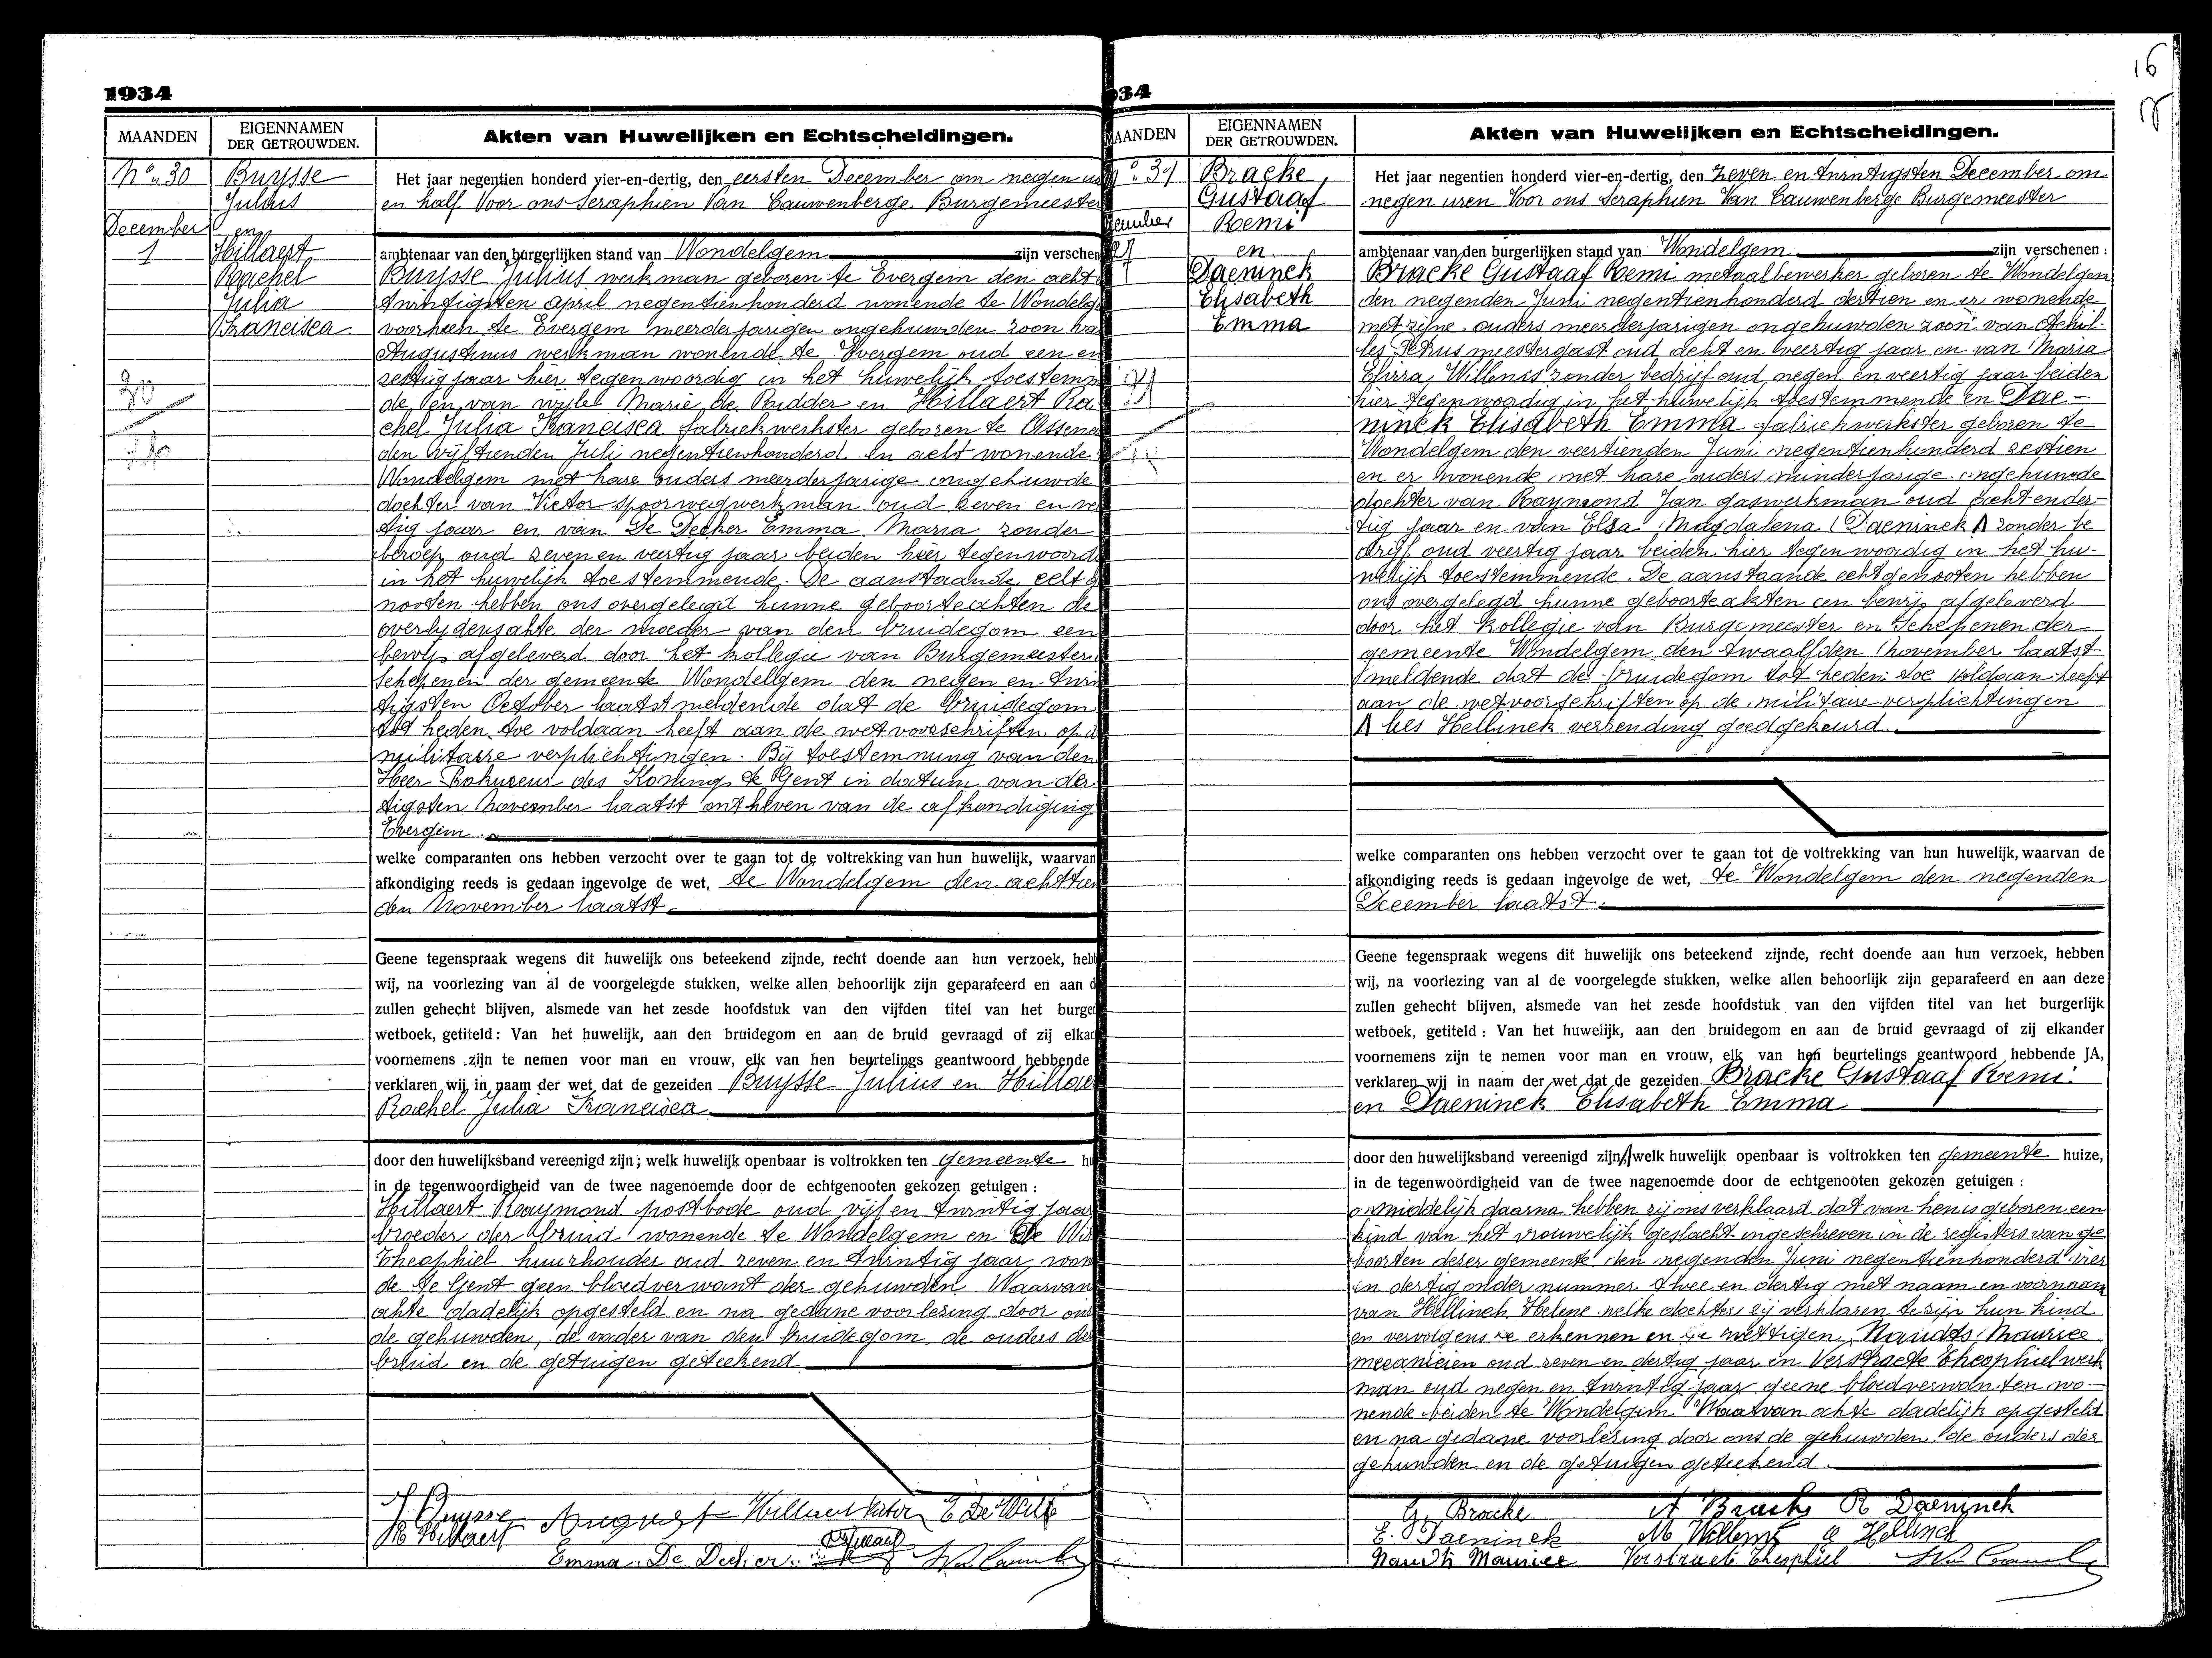 1934
MAANDEN
EIGENNAMEN
DER GETROUWDEN.
Akten van Huwelijken en Echtscheidingen.
No. 30
December
1
Buysse
Julius
en
Hillaert
Rachel
Julia
Francisca
Het jaar negentien honderd vier-en-dertig, den eersten December om negen
en half Voor ons Seraphien Van Cauwenberge Burgemeester
ambtenaar van den burgerlijken stand van Wondelgem zijn verschen
Buysse Julius werkman geboren te Evergem den acht
twintigsten april negentienhonderd wonende te Wondelge
voorheen te Evergem meerderjarigen ongehuwden zoon va
Augustinus werkman wonende te Evergem oud een en
zestig jaar hier tegenwoordig in het huwelijk toestemm
de en van wyle Marie de Pudder en Hillaert Ra
chel Julia Francisca fabriekwerkster geboren te Assene
den vijftienden Juli negentienhonderd en acht wonende
Wondelgem met hare ouders meerderjarige ongehuwde
dochter van Victor spoorwegwerkman oud zeven en ve
tig jaar en van De Decker Emma Maria zonder
beroep oud zeven en veertig jaar beiden hier tegenwoord
in het huwelijk toestemmende. De aanstaande echt
nooten hebben ons overgelegd hunne geboorteakten de
overlydensakte der moeder van den bruidegom een
bewys afgeleverd door het kollegie van Burgemeester
Schepenen der gemeente Wondelgem den negen en twin
tigsten October laatst meldende dat de bruidegom
tot heden toe voldaan heeft aan de wetvoorschriften op d
militaire verplichtingen. Bij toestemming van den
Heer Prokureur des Konings te Gent in datum van der
tigsten November laatst ontheven van de afkondiging
Evergem
welke comparanten ons hebben verzocht over te gaan tot de voltrekking van hun huwelijk, waarvan
afkondiging reeds is gedaan ingevolge de wet, te Wondelgem den achttien
den November laatst
Geene tegenspraak wegens dit huwelijk ons beteekend zijnde, recht doende aan hun verzoek, heb
wij, na voorlezing van al de voorgelegde stukken, welke allen behoorlijk zijn geparafeerd en aan d
zullen gehecht blijven, alsmede van het zesde hoofdstuk van den vijfden titel van het burger
wetboek, getiteld : Van het huwelijk, aan den bruidegom en aan de bruid gevraagd of zij elkan
voornemens zijn te nemen voor man en vrouw, elk van hen beurtelings geantwoord hebbende
verklaren wij in naam der wet dat de gezeiden Buysse Julius en Hillae
Rachel Julia Francisca
door den huwelijksband vereenigd zijn ; welk huwelijk openbaar is voltrokken ten gemeente hu
in de tegenwoordigheid van de twee nagenoemde door de echtgenooten gekozen getuigen :
Hillaert Raaymond postbode oud vijf en twintig jaar
broeder der bruid wonende te Wondelgem en De Wit
Theophiel huurhouder oud zeven en twintig jaar won
de te Gent geen bloedverwant der gehuwden. Waarvan
akte dadelijk opgesteld en na gedane voorlezing door ons
de gehuwden, de vader van den bruidegom de ouders der
bruid en de getuigen geteekend
J Buysse August Hillaert Victor E De Witt
R Hillaert
Emma De Decker
34
16
MAANDEN
EIGENNAMEN
DER GETROUWDEN.
Akten van Huwelijken en Echtscheidingen.
No. 31
cember
27
Bracke
Gustaaf
Remi
en
Daeninck
Elisabeth
Emma
Het jaar negentien honderd vier-en-dertig, den zeven en twintigsten December om
negen uren Voor ons Seraphien Van Cauwenberge Burgemeester
ambtenaar van den burgerlijken stand van Wondelgem zijn verschenen :
Bracke Gustaaf Remi metaalbewerker geboren te Wondelgem
den negenden Juni negentienhonderd dertien en er wonende
met zijne ouders meerderjarigen ongehuwden zoon van Achil-
les Petrus meestergast oud acht en veertig jaar en van Maria
Elvira Willems zonder bedrijf oud negen en veertig jaar beiden
hier tegenwoordig in het huwelijk toestemmende en Dae-
ninck Elisabeth Emma fabriekwerkster geboren te
Wondelgem den veertienden Juni negentienhonderd zestien
en er wonende met hare ouders minderjarige ongehuwde
dochter van Raymond Jan gaswerkman oud acht en der-
tig jaar en van Elsa Magdalena (Daeninck Λ zonder be
drijf oud veertig jaar beiden hier tegenwoordig in het hu-
welijk toestemmende. De aanstaande echtgenooten hebben
ons overgelegd hunne geboorteakten een bewijs afgeleverd
door het kollegie van Burgemeester en Schepenen der
gemeente Wondelgem den twaalfden November laatst
meldende dat de bruidegom tot heden toe voldaan heeft
aan de wetvoorschriften op de militaire verplichtingen
Λ lees Hellinck verzending goedgekeurd.
welke comparanten ons hebben verzocht over te gaan tot de voltrekking van hun huwelijk, waarvan de
afkondiging reeds is gedaan ingevolge de wet, te Wondelgem den negenden
December laatst.
Geene tegenspraak wegens dit huwelijk ons beteekend zijnde, recht doende aan hun verzoek, hebben
wij, na voorlezing van al de voorgelegde stukken, welke allen behoorlijk zijn geparafeerd en aan deze
zullen gehecht blijven, alsmede van het zesde hoofdstuk van den vijfden titel van het burgerlijk
wetboek, getiteld : Van het huwelijk, aan den bruidegom en aan de bruid gevraagd of zij elkander
voornemens zijn te nemen voor man en vrouw, elk van hen beurtelings geantwoord hebbende JA,
verklaren wij in naam der wet dat de gezeiden Bracke Gustaaf Remi
en Daeninck Elisabeth Emma
door den huwelijksband vereenigd zijn, welk huwelijk openbaar is voltrokken ten gemeente huize,
in de tegenwoordigheid van de twee nagenoemde door de echtgenooten gekozen getuigen :
onmiddelijk daarna hebben zij ons verklaard dat van hen is geboren een
kind van het vrouwelijk geslacht ingeschreven in de registers van ge
boorten dezer gemeente den negenden Juni negentienhonderd vier
en dertig onder nummer twee en dertig met naam en voornaam
van Hellinck Helene welke dochter zij verklaren te zijn hun kind
en vervolgens te erkennen en te wettigen, Naudts Maurice
mecanicien oud zeven en dertig jaar en Verstraete Theophiel werk
man oud negen en twintig jaar geene bloedverwanten wo-
nende beiden te Wondelgem. Waarvan akte dadelijk opgesteld
en na gedane voorlezing door ons de gehuwden, de ouders der
gehuwden en de getuigen geteekend.
G. Bracke A Bracke R Daeninck
E. Daeninck M Willems Hellinck
Naudts Maurice Verstraete Theophiel